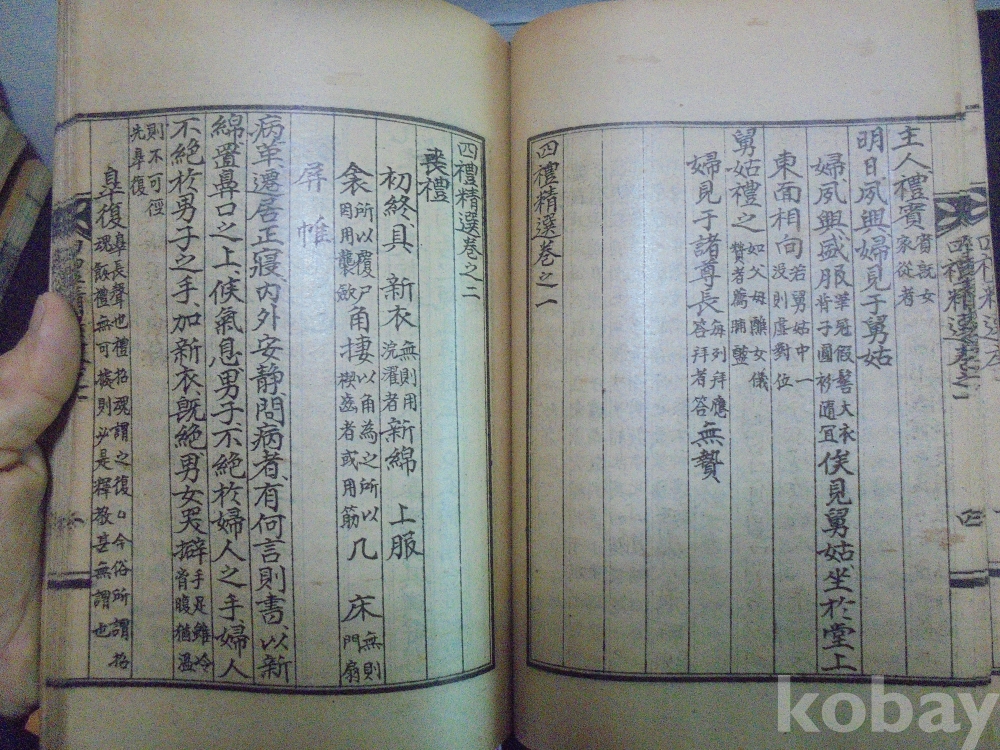 主人禮賓 賓就女家從者
明日夙興婦見于舅姑
婦夙興盛服 華冠假髻大衣背子圓衫隨宜 俟見舅姑坐於堂上
東面相向 若舅姑中一沒則虛對位
舅姑禮之 如父母醮女儀贊者薦脯醢
婦見于諸尊長 每列拜應答拜者答 無贄
四禮精選卷之一
四禮精選卷之二
喪禮
初終具 新衣 無則用浣濯者 新綿 上服
衾 所以覆尸因用襲歛 角捿 以角為之所以楔齒者或用筋 几 床 無則門扇
屏 帷
病革遷居正寢、內外安静、問病者、有何言則書、以新
綿置鼻口之上、俟氣息、男子不絕於婦人之手婦人
不絕於男子之手、加新衣、既絕、男女哭擗 手足雖冷胷腹猶溫
則不可徑先皐復
皐復 皐長聲也禮招魂謂之復口今俗所謂招魂飯禮無可據則必是釋教甚無謂也
kobay